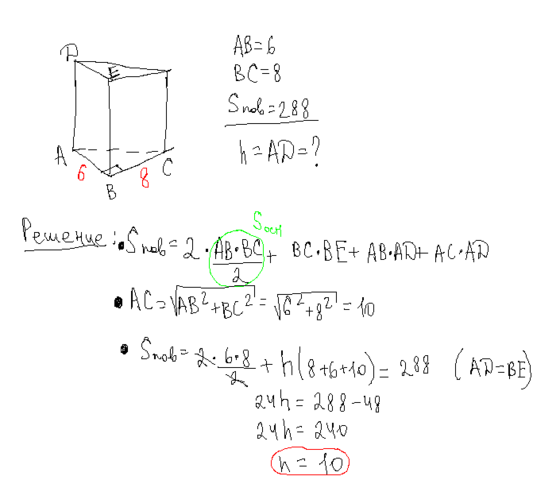 AB=6
BC=8
Sпов=288
h=AD=?
D
E
A
B
C
6
8
Решение: • Sпов= 2 · AB·BC/2 + BC·BE + AB·AD + AC·AD
Sосн
• AC=√AB²+BC² = √6²+8² = 10
• Sпов= 2·6·8/2 + h(8+6+10) = 288 (AD=BE)
24h = 288-48
24h = 240
h = 10